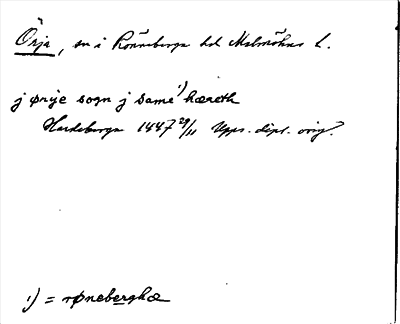 Örja, sn i Rönneberga hd Malmöhus l.
j ørije sogn j samė ¹) hæreth
Hardeberga 1447 29/11 Upps. dipl. orig?
¹) = røneberghæ